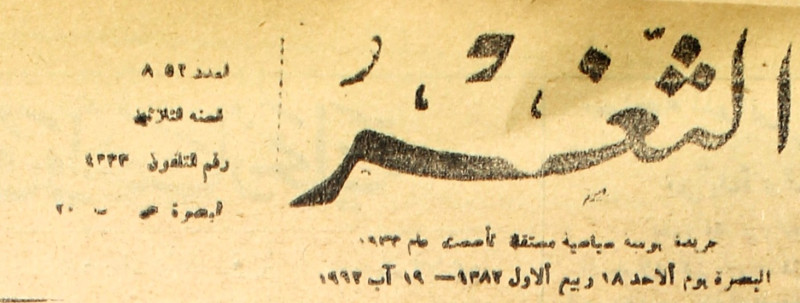 الثغر
العدد
السنة الثلاثون
رقم التلفون
البصرة ص ب ٢٠
جريدة يومية سياسية مستقلة تأسست عام ١٩٣٣
البصرة يوم ألاحد ١٨ ربيع ألاول ١٣٨٢ — ١٩ آب ١٩٦٢